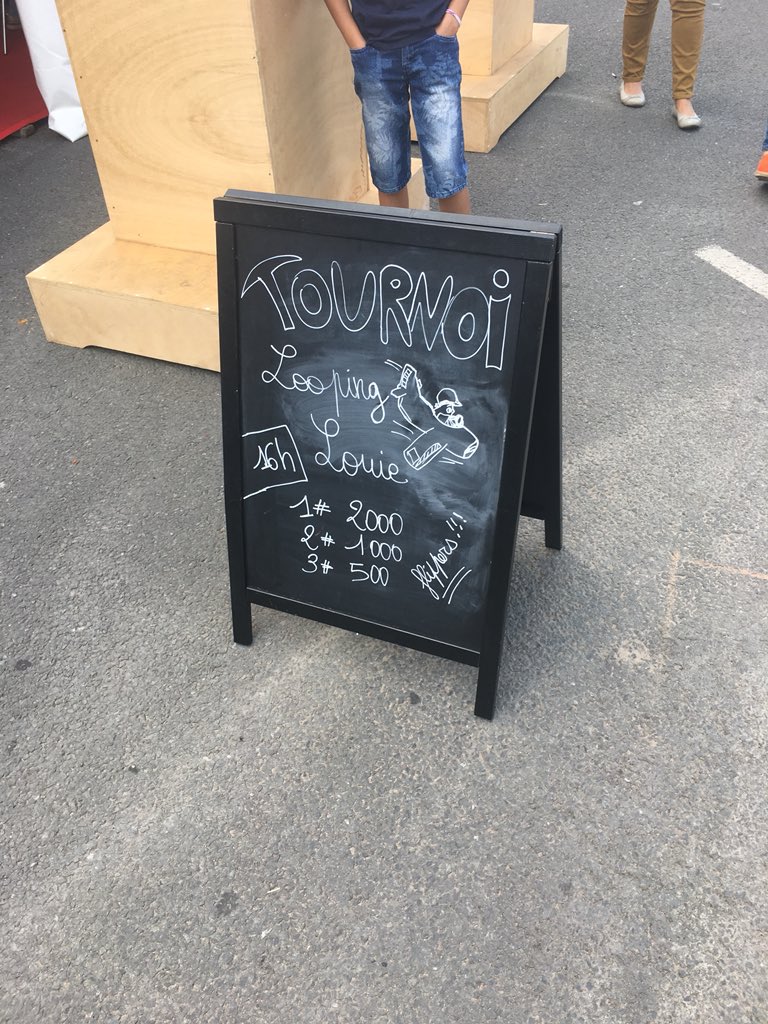 TOURNOi
Looping
Louie
16h
1# 2000
2# 1000
3# 500
flippers!!!